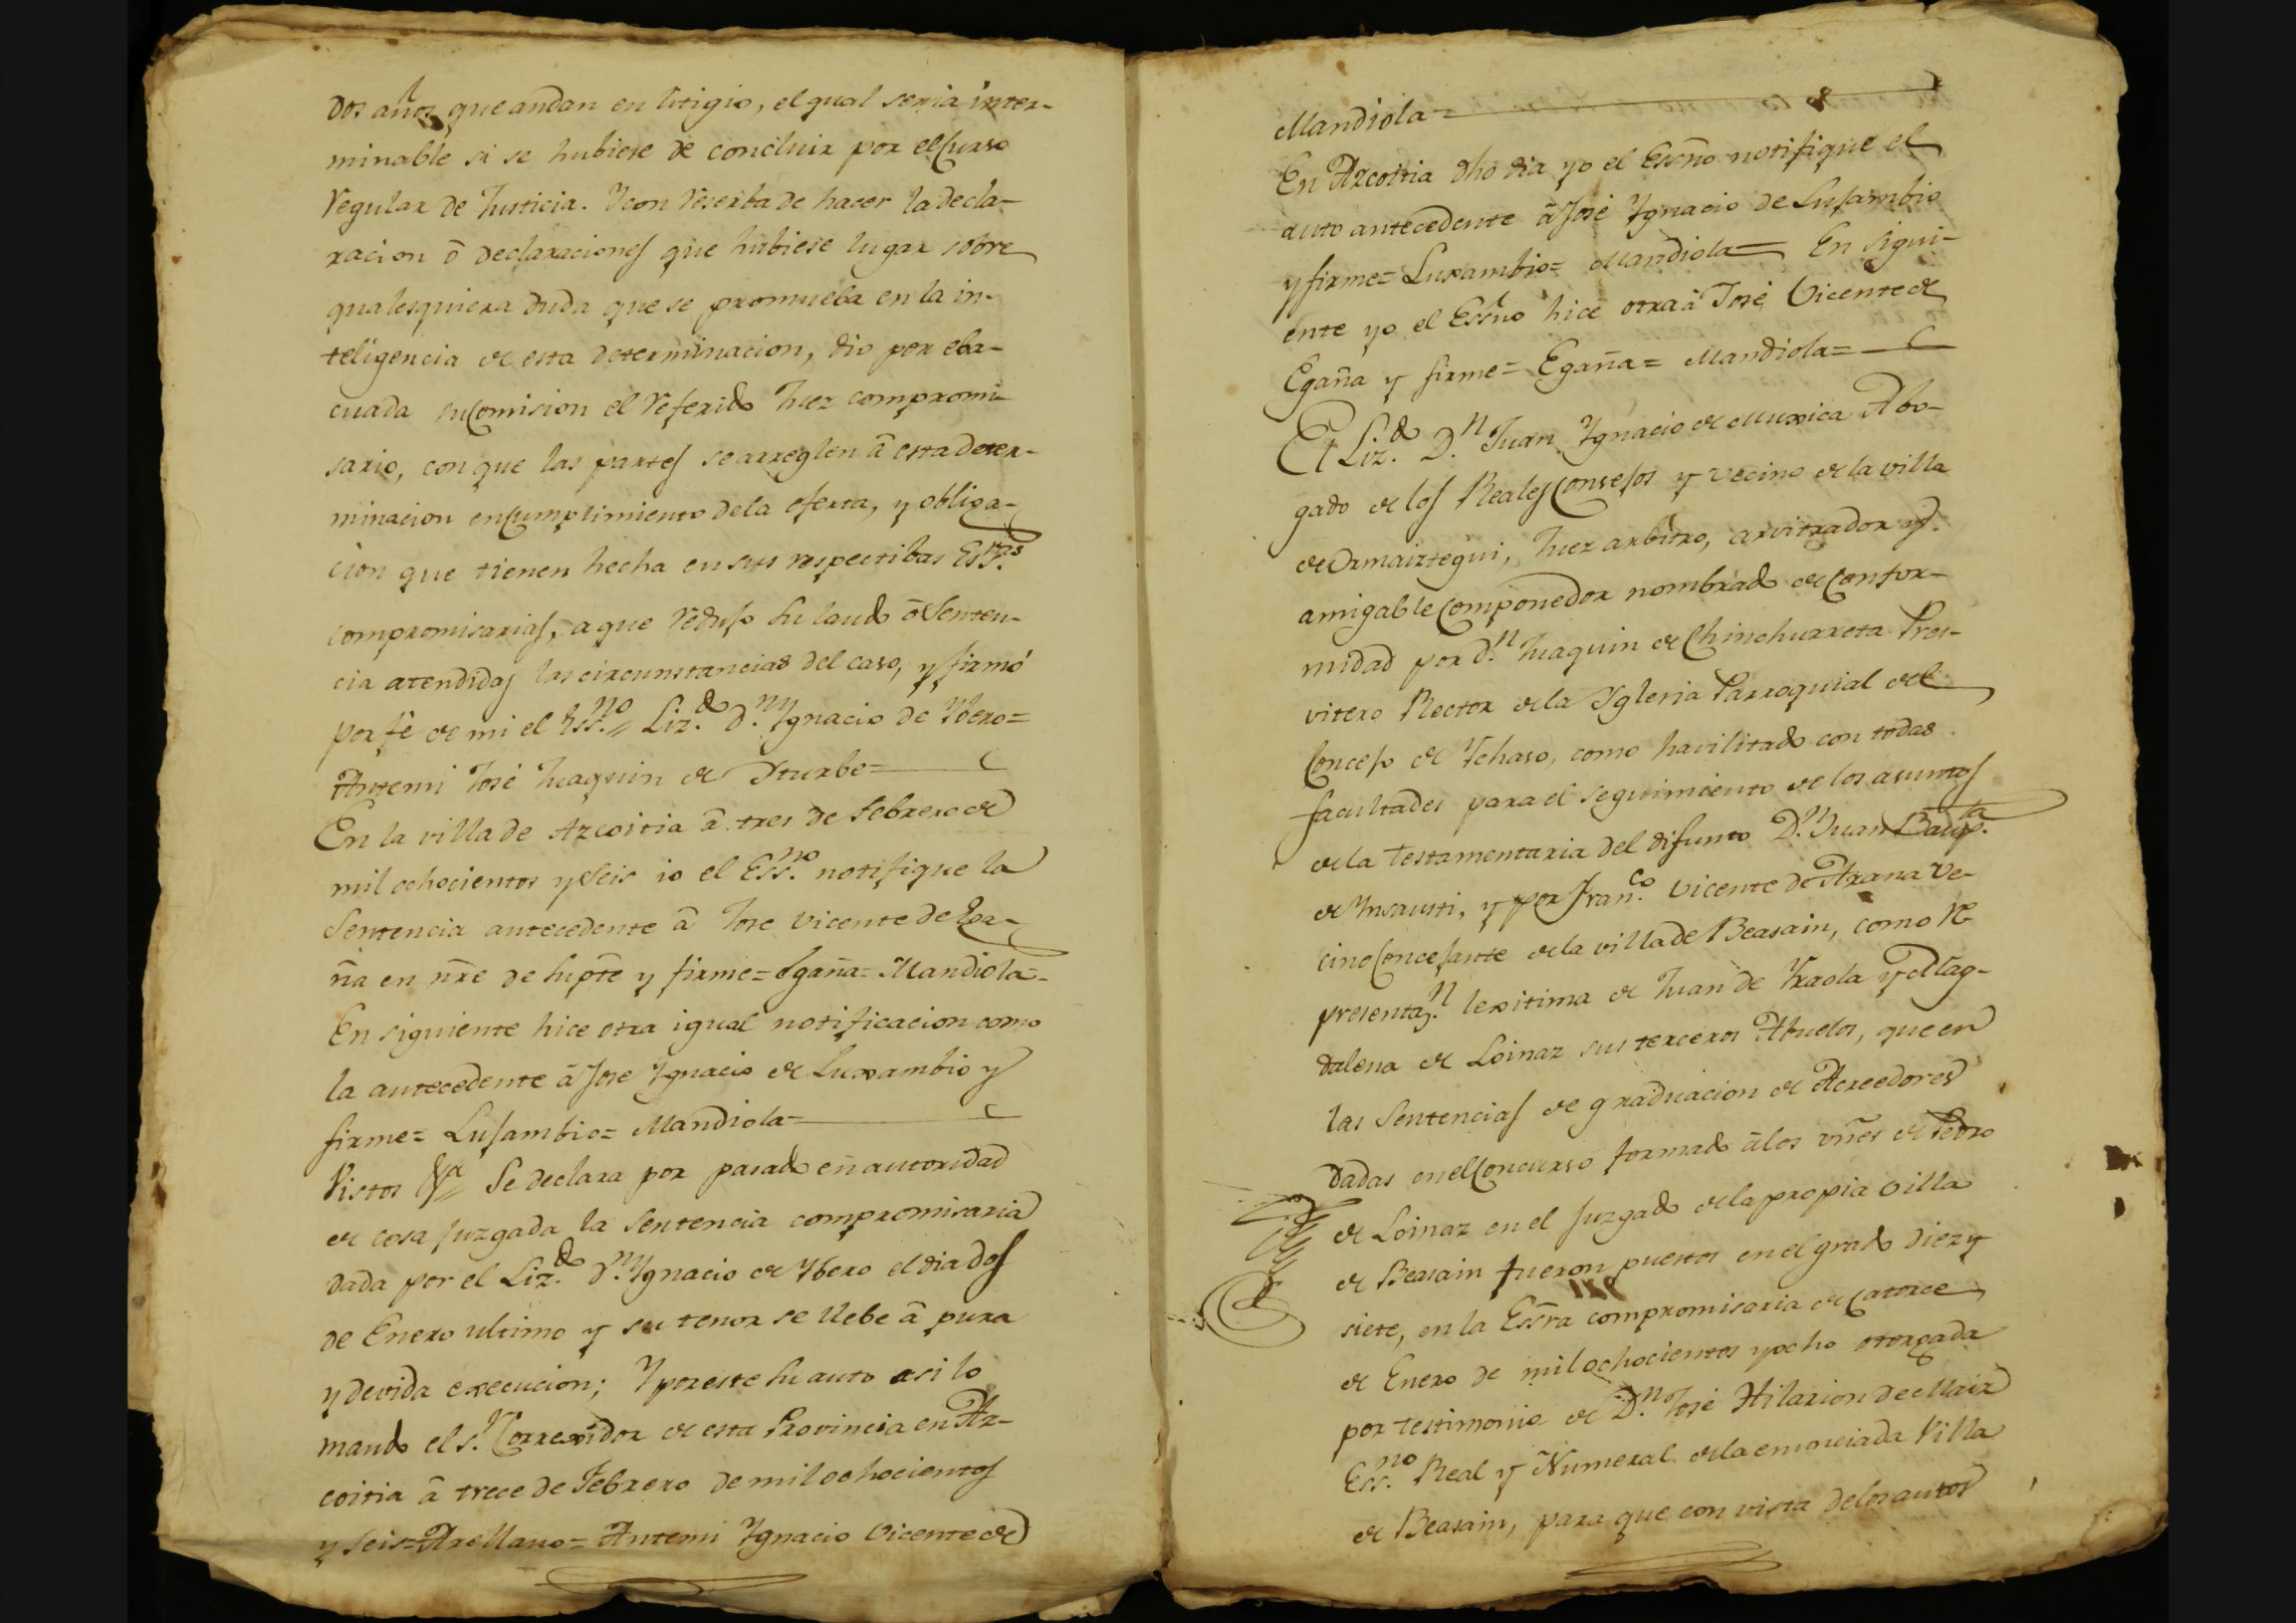 dos años que andan en litigio, el qual seria inter-
minable si se hubiese de concluir por el Curso
Regular de Justicia. Y con Reserba de hacer la decla-
racion ó declaraciones que hubiese lugar sobre
qualesquiera duda que se promueba en la in-
teligencia de esta determinacion, dio por eba-
cuada su Comision el Referido Juez compromi-
sario, con que las partes se arreglen â esta deter-
minacion en Cumplimiento de la oferta, y obliga-
cion que tienen hecha en sus respectibas Ess.ras
compromisarias, a que Redujo su laudo ó Senten-
cia atendidas las circunstancias del caso, y firmó
por fé de mi el Ess.no = Liz.do d.n Ygnacio de Ybero=
Antemi José Juaquin de Yturbe=
En la villa de Azcoitia â tres de Febrero de
mil ochocientos y Seis io el Ess.no notifique la
Sentencia antecedente â Jose Vicente de Ega-
ña en nre de su pte y firme= Egaña= Mandiola=
En siguiente hice otra igual notificacion como
la antecedente â Jose Ygnacio de Luxambio y
firme= Lujambio= Mandiola=
Vistos &a = Se declara por pasado en autoridad
de cosa juzgada la Sentencia compromisaria
dada por el Liz.do d.n Ygnacio de Ybero el dia dos
de Enero ultimo y su tenor se llebe â pura
y devida execucion; Y por este su auto asi lo
mando el s.r Correxidor de esta Provincia en Az-
coitia â trece de Febrero de mil ochocientos
y Seis= Arellano= Antemi Ygnacio Vicente de
Mandiola=
En Azcoitia dho dia yo el Essno notifique el
auto antecedente â José Ygnacio de Lujambio
y firme= Luxambio= Mandiola= En sigui-
ente yo el Essno hice otra â José Vicente de
Egaña y firme= Egaña= Mandiola=
El Liz.do D.n Juan Ygnacio de Muxica Abo-
gado de los Reales Consejos y vecino de la villa
de Ormaiztegui, Juez arbitro, arvitrador y
amigable Componedor nombrado de Confor-
midad por d.n Juaquin de Chinchurreta Pres-
vitero Rector de la Yglesia Parroquial del
Concejo de Ychaso, como havilitado con todas
facultades para el seguimiento de los asuntos
de la Testamentaria del difunto D.n Juan Baup.ta
de Ynsausti, y por Fran.co Vicente de Arana Ve-
cino Concejante de la villa de Beasain, como Re
presentaz.n lexitima de Juan de Yraola y Mag-
dalena de Loinaz sus terceros Abuelos, que en
las Sentencias de graduacion de Acreedores
dadas en el Concurso formado â los vnes de Pedro
de Loinaz en el Juzgado de la propia Villa
de Beasain fueron puestos en el grado diez y
siete, en la Essra compromisaria de Catorce
de Enero de mil ochocientos y ocho otorgada
por testimonio de D.n José Hilarion de Maiz
Ess.no Real y Numeral de la enunciada Villa
de Beasain, para que con vista de los autos